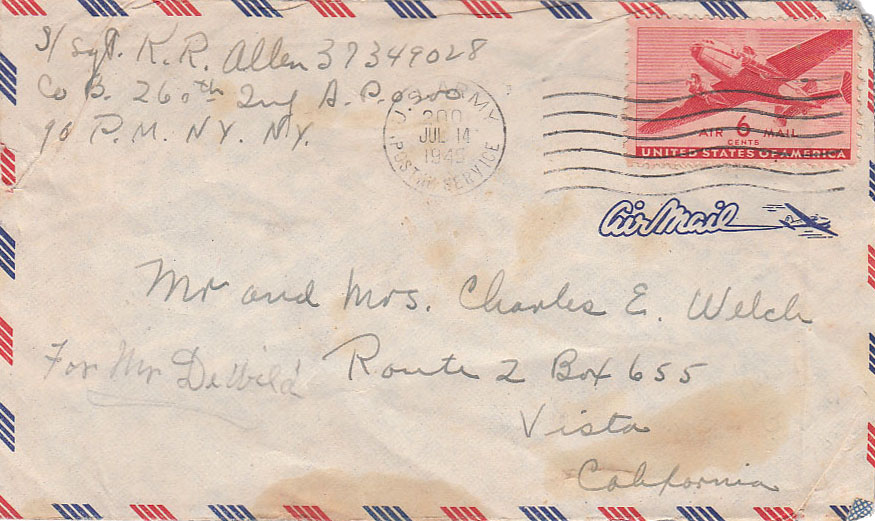 S/Sgt. K. R. Allen 37349028
Co B. 260th Inf A. P. O 200
% P. M. N.Y. N.Y.
U.S. ARMY
200
JUL 14
1945
POSTAL SERVICE
AIR 6 MAIL
CENTS
UNITED STATES OF AMERICA
Air Mail
Mr and Mrs. Charles E. Welch
For Mr DeWild
Route 2 Box 655
Vista
California